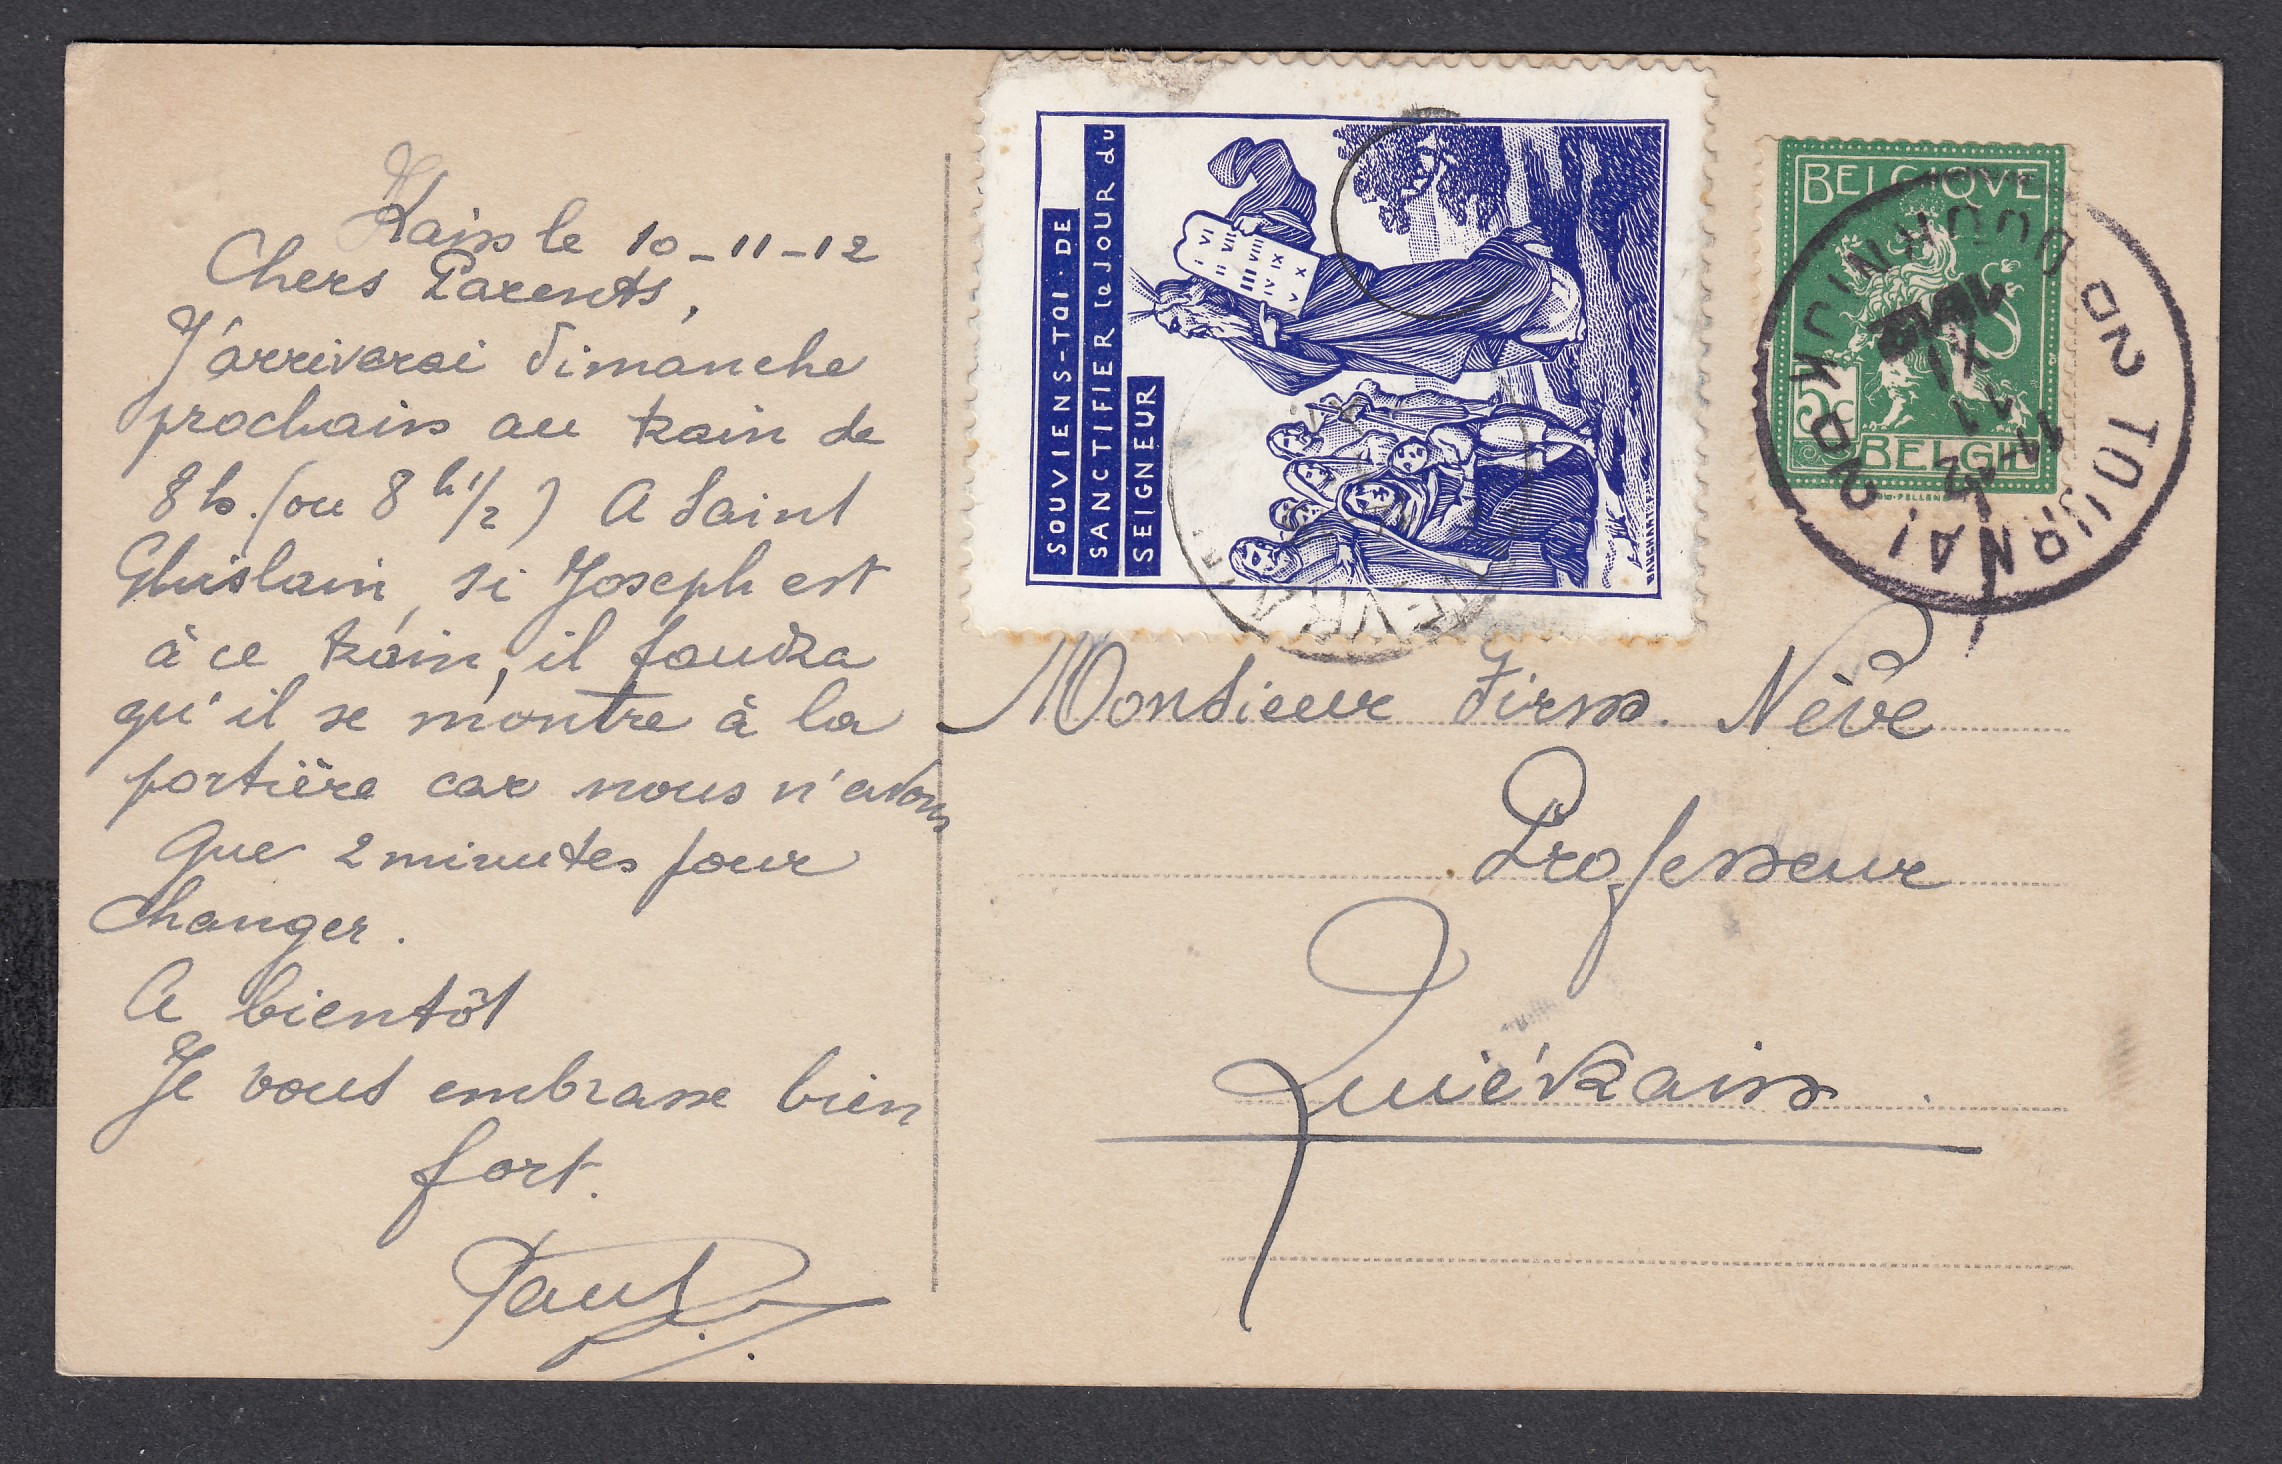 Kain le 10-11-12
Chers Parents,
J'arriverai dimanche
prochain au train de
8 h. (ou 8 h 1/2) A Saint
Ghislain, si Joseph est
à ce train, il faudra
qu'il se montre à la
portière car nous n'avons
que 2 minutes pour
changer.
A bientôt
Je vous embrasse bien
fort.
Paul
SOUVIENS-TOI·DE
SANCTIFIER le JOUR du
SEIGNEUR
I VI
II VII
III VIII
IV IX
V X
BELGIQUE
5c
BELGIË
TOURNAI 2D
DOORNIJK 2D
11-12
11
XI
1912
Monsieur Firm. Nève
Professeur
Quiévrain